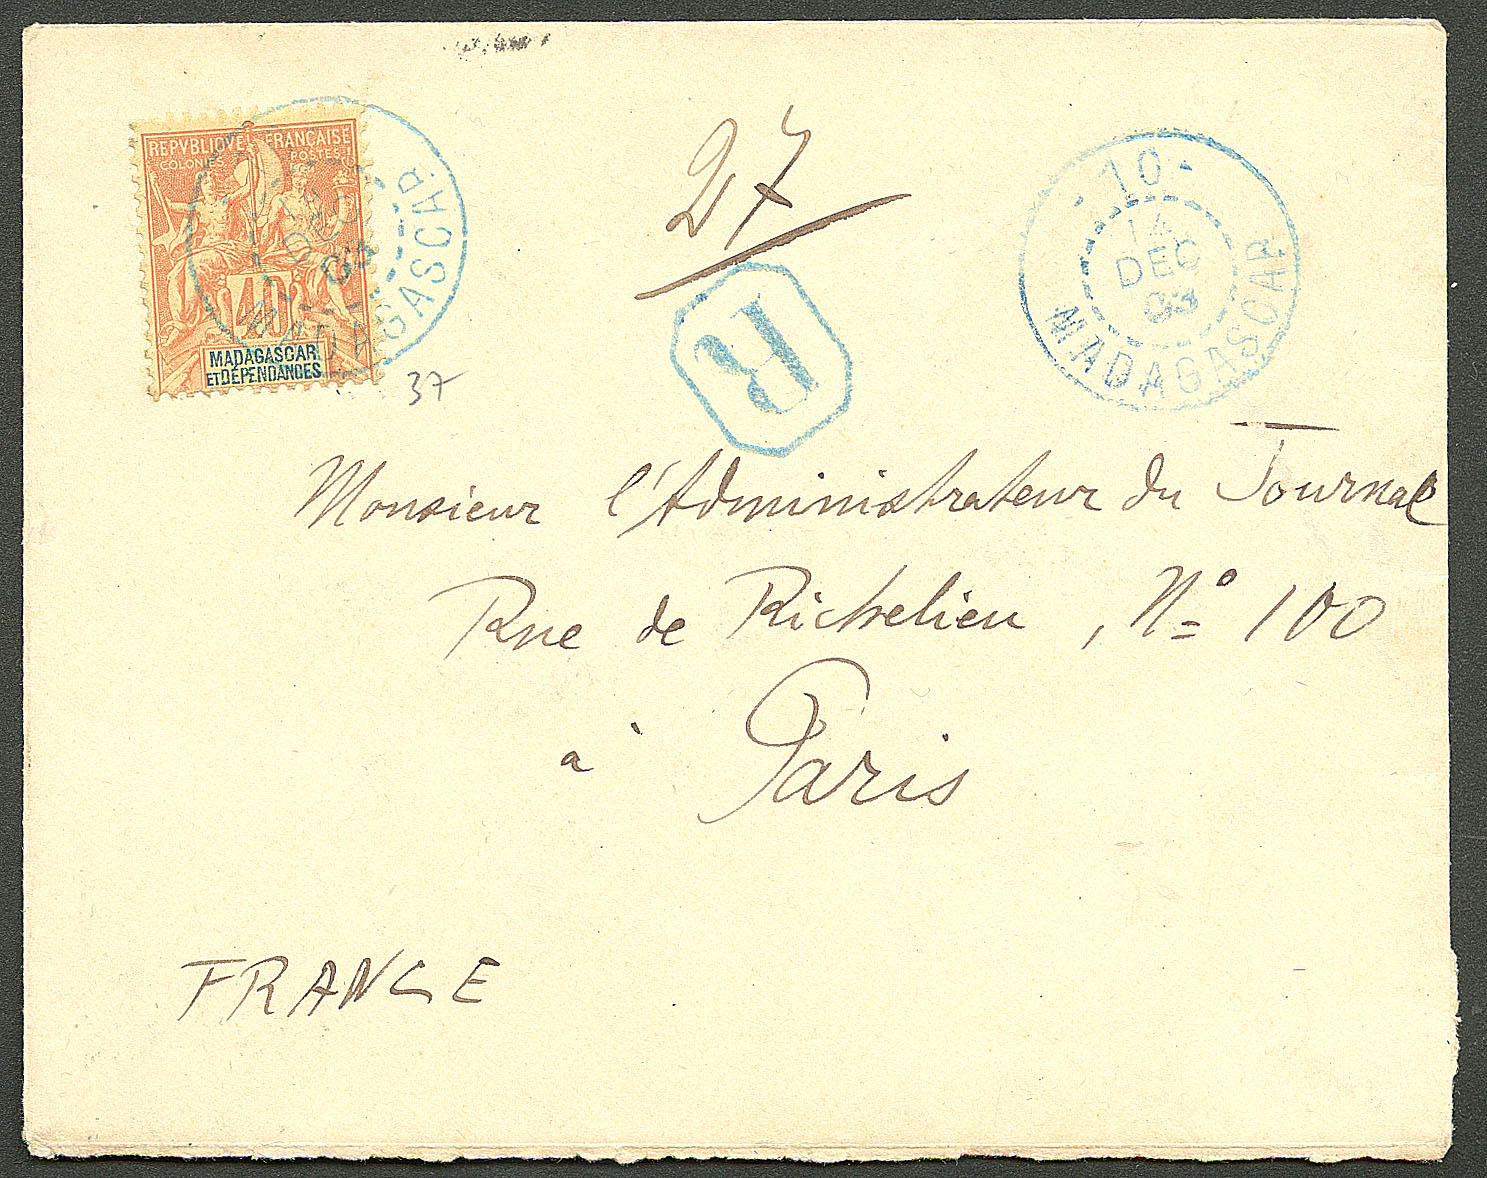 REPVBLIQVE FRANÇAISE
COLONIES POSTES
40
MADAGASCAR
ET DÉPENDANCES
DEC
03
MADAGASCAR
37
27
R
10
14
DEC
03
MADAGASCAR
Monsieur l'Administrateur du Journal
Rue de Richelieu, N° 100
à Paris
FRANCE